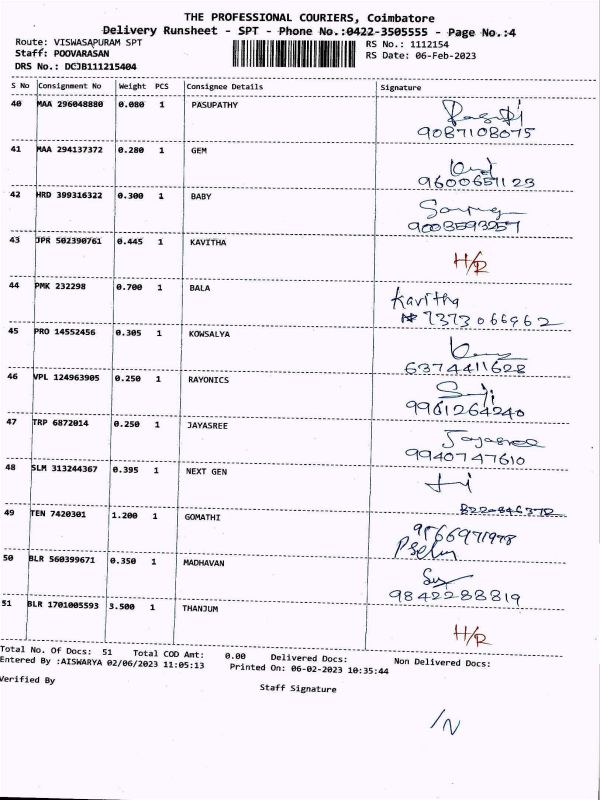 THE PROFESSIONAL COURIERS, Coimbatore
Delivery Runsheet - SPT - Phone No.:0422-3505555 - Page No.:4
Route: VISWASAPURAM SPT RS No.: 1112154
Staff: POOVARASAN RS Date: 06-Feb-2023
DRS No.: DCJB111215404
S No Consignment No Weight PCS Consignee Details Signature
40 MAA 296048880 0.080 1 PASUPATHY
9087108075
41 MAA 294137372 0.280 1 GEM
9600651123
42 HRD 399316322 0.300 1 BABY
9003593257
43 JPR 502390761 0.445 1 KAVITHA H/R
44 PMK 232298 0.700 1 BALA Kavitha
7373066962
45 PRO 14552456 0.305 1 KOWSALYA
6374411628
46 VPL 124963905 0.250 1 RAYONICS
9961264240
47 TRP 6872014 0.250 1 JAYASREE Jayasree
9940747610
48 SLM 313244367 0.395 1 NEXT GEN
49 TEN 7420301 1.200 1 GOMATHI
9566971978
50 BLR 560399671 0.350 1 MADHAVAN
9842288819
51 BLR 1701005593 3.500 1 THANJUM H/R
Total No. Of Docs: 51 Total COD Amt: 0.00 Delivered Docs: Non Delivered Docs:
Entered By :AISWARYA 02/06/2023 11:05:13 Printed On: 06-02-2023 10:35:44
Verified By Staff Signature